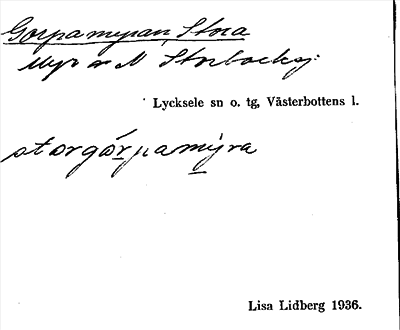 Gorpamyran, Stora
Myr av N Storbacksj:
Lycksele sn o. tg, Västerbottens l.
storgórpamýra
Lisa Lidberg 1936.